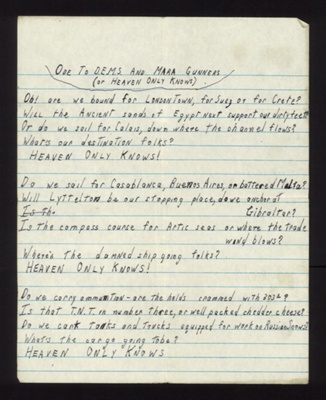 ODE TO D.E.M.S. AND MARA GUNNERS
(OR HEAVEN ONLY KNOWS)
Oh! are we bound for LONDON TOWN, for Suez or for Crete?
Will the ANCIENT sands of EGYPT next support our dirty feet?
Or do we sail for Calais, down where the channel flows?
What's our destination folks?
HEAVEN ONLY KNOWS!
Do we sail for Casablanca, Buenos Aires, or battered Malta?
Will Lyttelton be our stopping place, do we anchor at
Is the Gibralter?
Is the compass course for Artic seas or where the trade
wind blows?
Where's the damned ship going folks?
HEAVEN ONLY KNOWS!
Do we carry ammunition - are the holds crammed with
Is that T.N.T. in number three, or well packed chedder cheese?
Do we cart tanks and trucks equipped for work on Russian Snows?
What's the cargo going to be?
HEAVEN ONLY KNOWS